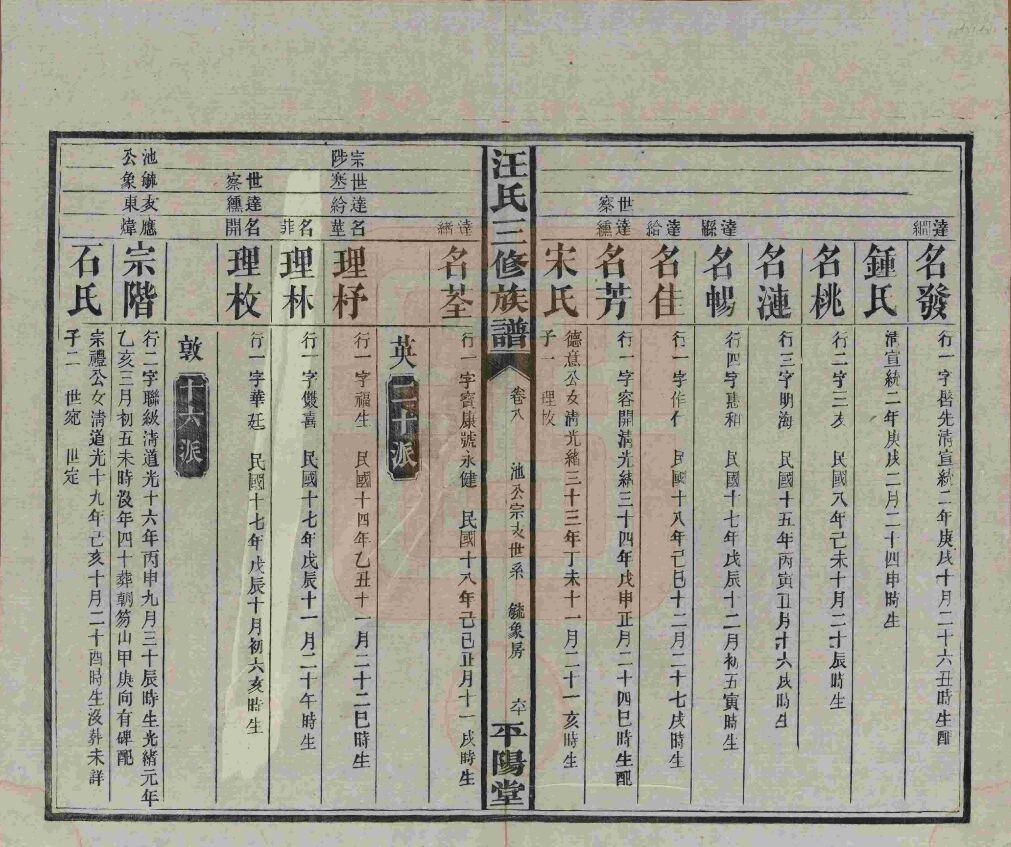 達繝
名發
行一字揩先清宣統二年庚戌十月二十六丑時生配
鍾氏
清宣統二年庚戌二月二十四申時生
名桃
行二字三友 民國八年己未十月二十辰時生
名漣
行三字明海 民國十五年丙寅丑月十六戌時生
達
名暢
行四字惠和 民國十七年戊辰十二月初五寅時生
達給
名佳
行一字作仁 民國十八年己巳十二月二十七戌時生
世察
達纁
名芳
行一字容開清光緒三十四年戊申正月二十四巳時生配
宋氏
德意公女清光緒三十三年丁未十一月二十一亥時生
子一 理枚
汪氏三修族譜
卷八
池公宗支世系
毓象房
平陽堂
達緒
名荃
行一字寶康號永健 民國十八年己巳正月十一戌時生
英
二十派
宗陟
世塞
達給
名華
理杼
行一字福生 民國十四年乙丑十一月二十二巳時生
名菲
理林
行一字儆喜 民國十七年戊辰十一月二十午時生
世察
達纁
名開
理枚
行一字華廷 民國十七年戊辰十月初六亥時生
敦
十六派
池公
毓象
友東
應煒
宗階
行二字聯級清道光十六年丙申九月三十辰時生光緒元年
乙亥三月初五未時沒年四十葬朝笏山甲庚向有碑配
石氏
宗禮公女清道光十九年己亥十月二十酉時生沒葬未詳
子二 世宛 世定